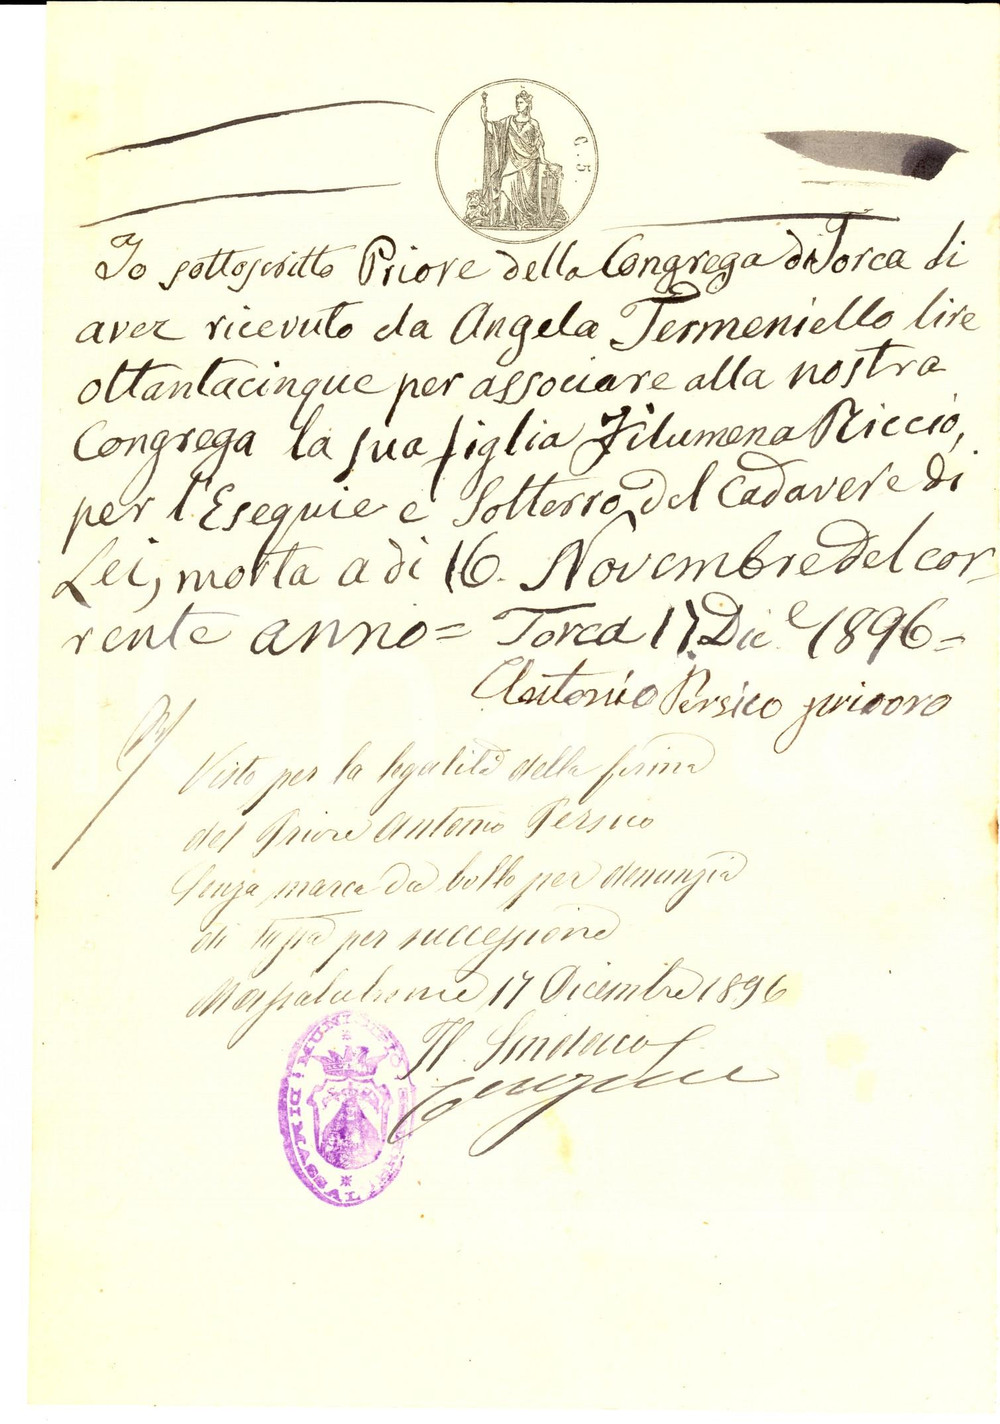 C. 5.
Io sottoscritto Priore della Congrega di Torca di
aver ricevuto da Angela Termeniello lire
ottantacinque per associare alla nostra
Congrega la sua figlia Filumena Riccio,
per l'Esequie e Sotterro del Cadavere di
Lei, morta a dì 16. Novembre del cor-
rente anno= Torca 17. Dice 1896=
Antonio Persico prioro
Visto per la legalità della firma
del Priore Antonio Persico
Senza marca da bollo per denunzia
di tassa per successione
Massalubrense 17 Dicembre 1896
Il Sindaco
MUNICIPIO DI MASSAL